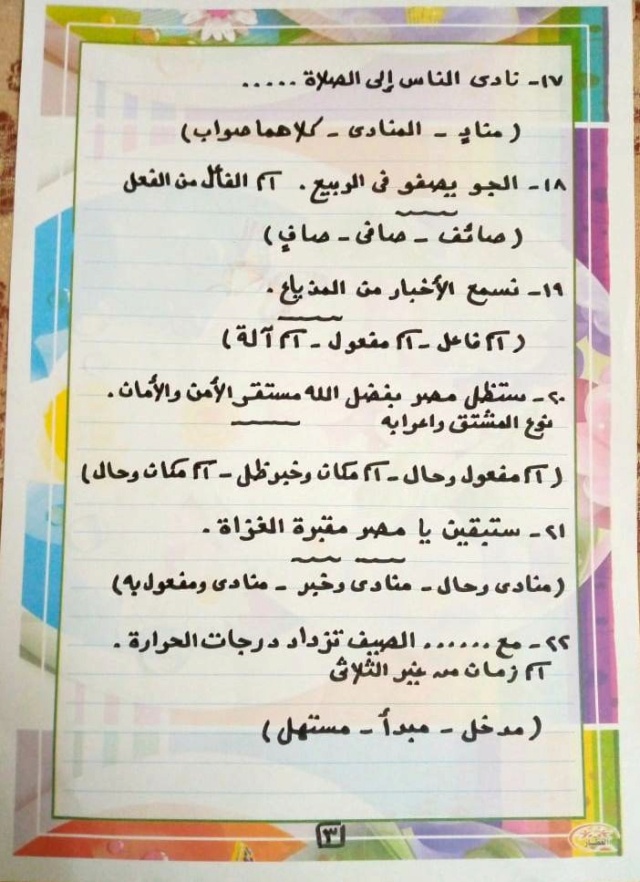 ١٧- نادى الناس إلى الصلاة .....
( منادٍ - المنادى - كلاهما صواب)
١٨- الجو يصفو فى الربيع . اسم الفاعل من الفعل
( صائف - صافى - صافٍ )
١٩- نسمع الأخبار من المذياع .
( اسم فاعل - اسم مفعول - اسم آلة )
٢٠- ستظل مصر بفضل الله مستقر الأمن والأمان .
نوع المشتق واعرابه
( اسم مفعول وحال - اسم مكان وخبر ظل - اسم مكان وحال)
٢١- ستبقين يا مصر مقبرة الغزاة .
(منادى وحال - منادى وخبر - منادى ومفعول به)
٢٢- مع ...... الصيف تزداد درجات الحرارة .
اسم زمان من غير الثلاثى
( مدخل - مبدأ - مستهل )
٣